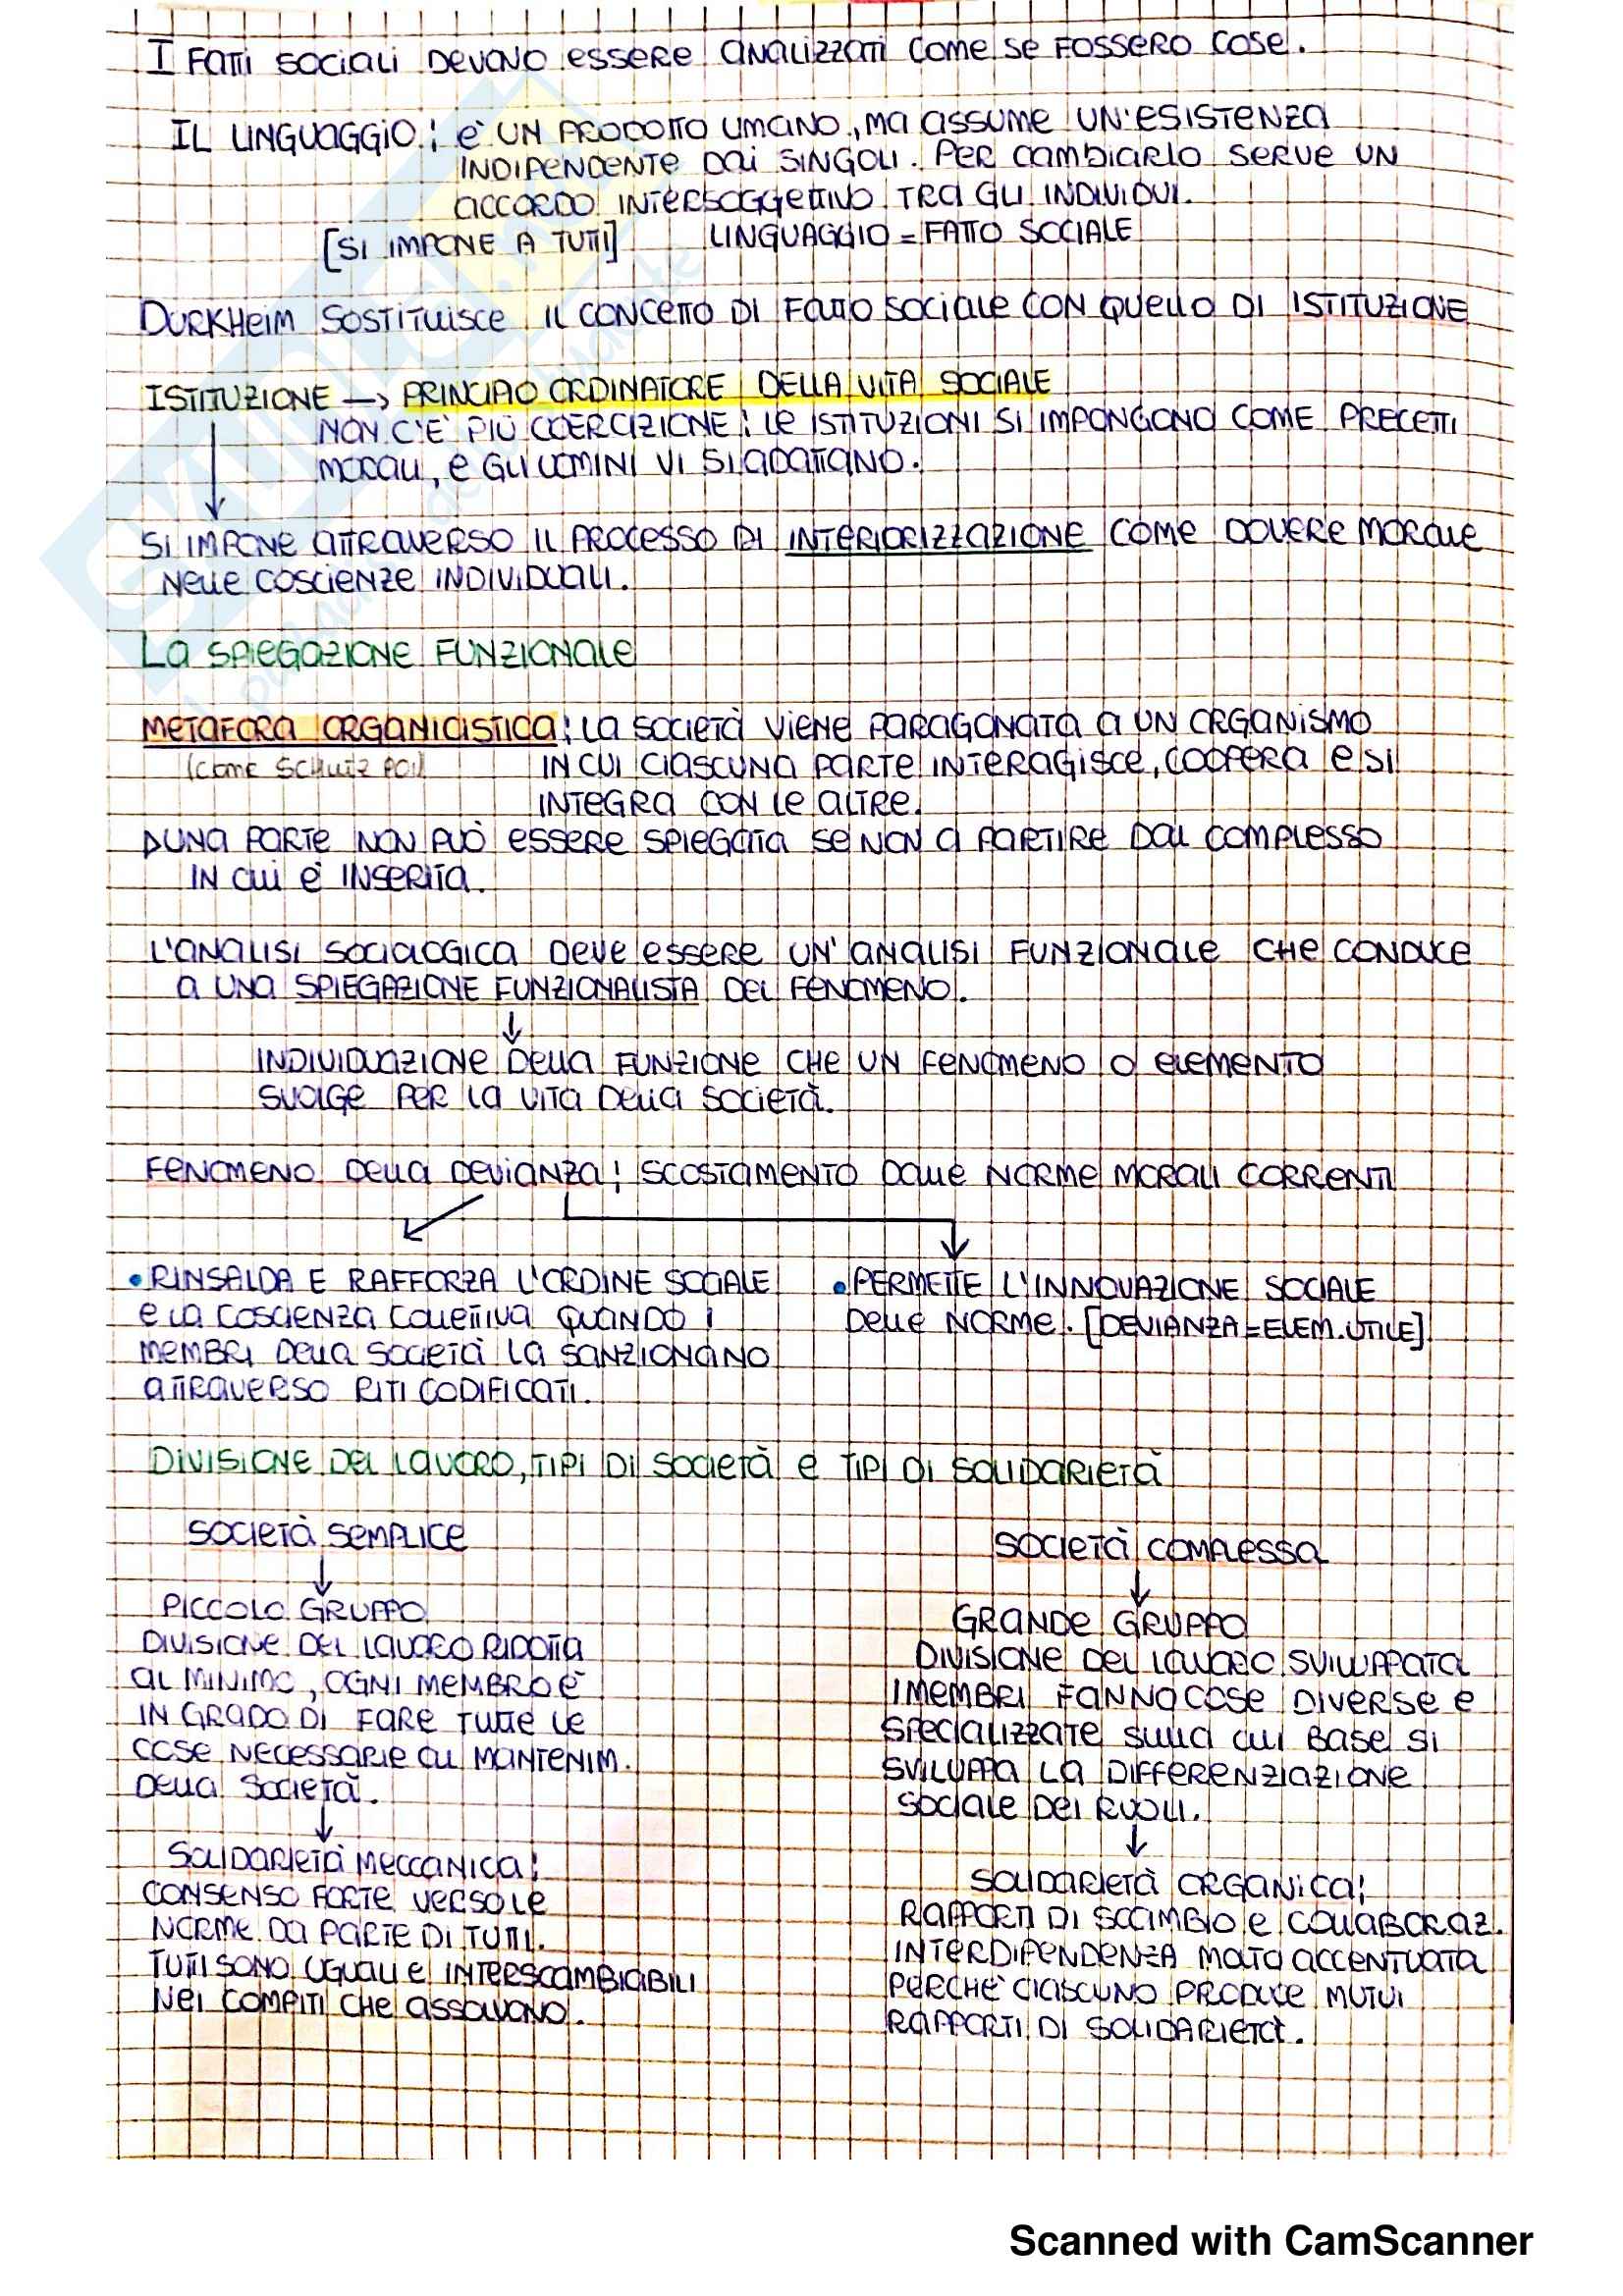 I FATTI SOCIALI DEVONO ESSERE ANALIZZATI COME SE FOSSERO COSE.
IL LINGUAGGIO: È UN PRODOTTO UMANO, MA ASSUME UN'ESISTENZA
INDIPENDENTE DAI SINGOLI. PER CAMBIARLO SERVE UN
ACCORDO INTERSOGGETTIVO TRA GLI INDIVIDUI.
[SI IMPONE A TUTTI] LINGUAGGIO = FATTO SOCIALE
DURKHEIM SOSTITUISCE IL CONCETTO DI FATTO SOCIALE CON QUELLO DI ISTITUZIONE
ISTITUZIONE → PRINCIPIO ORDINATORE DELLA VITA SOCIALE
NON C'È PIÙ COERCIZIONE: LE ISTITUZIONI SI IMPONGONO COME PRECETTI
MORALI, E GLI UOMINI VI SI ADATTANO.
SI IMPONE ATTRAVERSO IL PROCESSO DI INTERIORIZZAZIONE COME DOVERE MORALE
NELLE COSCIENZE INDIVIDUALI.
LA SPIEGAZIONE FUNZIONALE
METAFORA ORGANICISTICA: LA SOCIETÀ VIENE PARAGONATA A UN ORGANISMO
(COME SCHUTZ POI) IN CUI CIASCUNA PARTE INTERAGISCE, COOPERA E SI
INTEGRA CON LE ALTRE.
UNA PARTE NON PUÒ ESSERE SPIEGATA SE NON A PARTIRE DAL COMPLESSO
IN CUI È INSERITA.
L'ANALISI SOCIOLOGICA DEVE ESSERE UN'ANALISI FUNZIONALE CHE CONDUCE
A UNA SPIEGAZIONE FUNZIONALISTA DEL FENOMENO.
↓
INDIVIDUAZIONE DELLA FUNZIONE CHE UN FENOMENO O ELEMENTO
SVOLGE PER LA VITA DELLA SOCIETÀ.
FENOMENO DELLA DEVIANZA: SCOSTAMENTO DALLE NORME MORALI CORRENTI
• RINSALDA E RAFFORZA L'ORDINE SOCIALE
E LA COSCIENZA COLLETTIVA QUANDO I
MEMBRI DELLA SOCIETÀ LA SANZIONANO
ATTRAVERSO RITI CODIFICATI.
• PERMETTE L'INNOVAZIONE SOCIALE
DELLE NORME. [DEVIANZA = ELEM. UTILE]
DIVISIONE DEL LAVORO, TIPI DI SOCIETÀ E TIPI DI SOLIDARIETÀ
SOCIETÀ SEMPLICE
↓
PICCOLO GRUPPO
DIVISIONE DEL LAVORO RIDOTTA
AL MINIMO, OGNI MEMBRO È
IN GRADO DI FARE TUTTE LE
COSE NECESSARIE AL MANTENIM.
DELLA SOCIETÀ.
↓
SOLIDARIETÀ MECCANICA:
CONSENSO FORTE VERSO LE
NORME DA PARTE DI TUTTI.
TUTTI SONO UGUALI E INTERSCAMBIABILI
NEI COMPITI CHE ASSOLVONO.
SOCIETÀ COMPLESSA
↓
GRANDE GRUPPO
DIVISIONE DEL LAVORO SVILUPPATA
I MEMBRI FANNO COSE DIVERSE E
SPECIALIZZATE SULLA CUI BASE SI
SVILUPPA LA DIFFERENZIAZIONE
SOCIALE DEI RUOLI.
↓
SOLIDARIETÀ ORGANICA:
RAPPORTI DI SCAMBIO E COLLABORAZ.
INTERDIPENDENZA MOLTO ACCENTUATA
PERCHÉ CIASCUNO PRODUCE MUTUI
RAPPORTI DI SOLIDARIETÀ.
Scanned with CamScanner